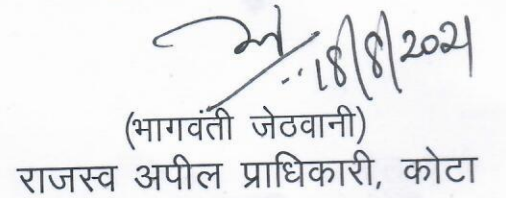 18/8/2021
(भागवंती जेठवानी)
राजस्व अपील प्राधिकारी, कोटा